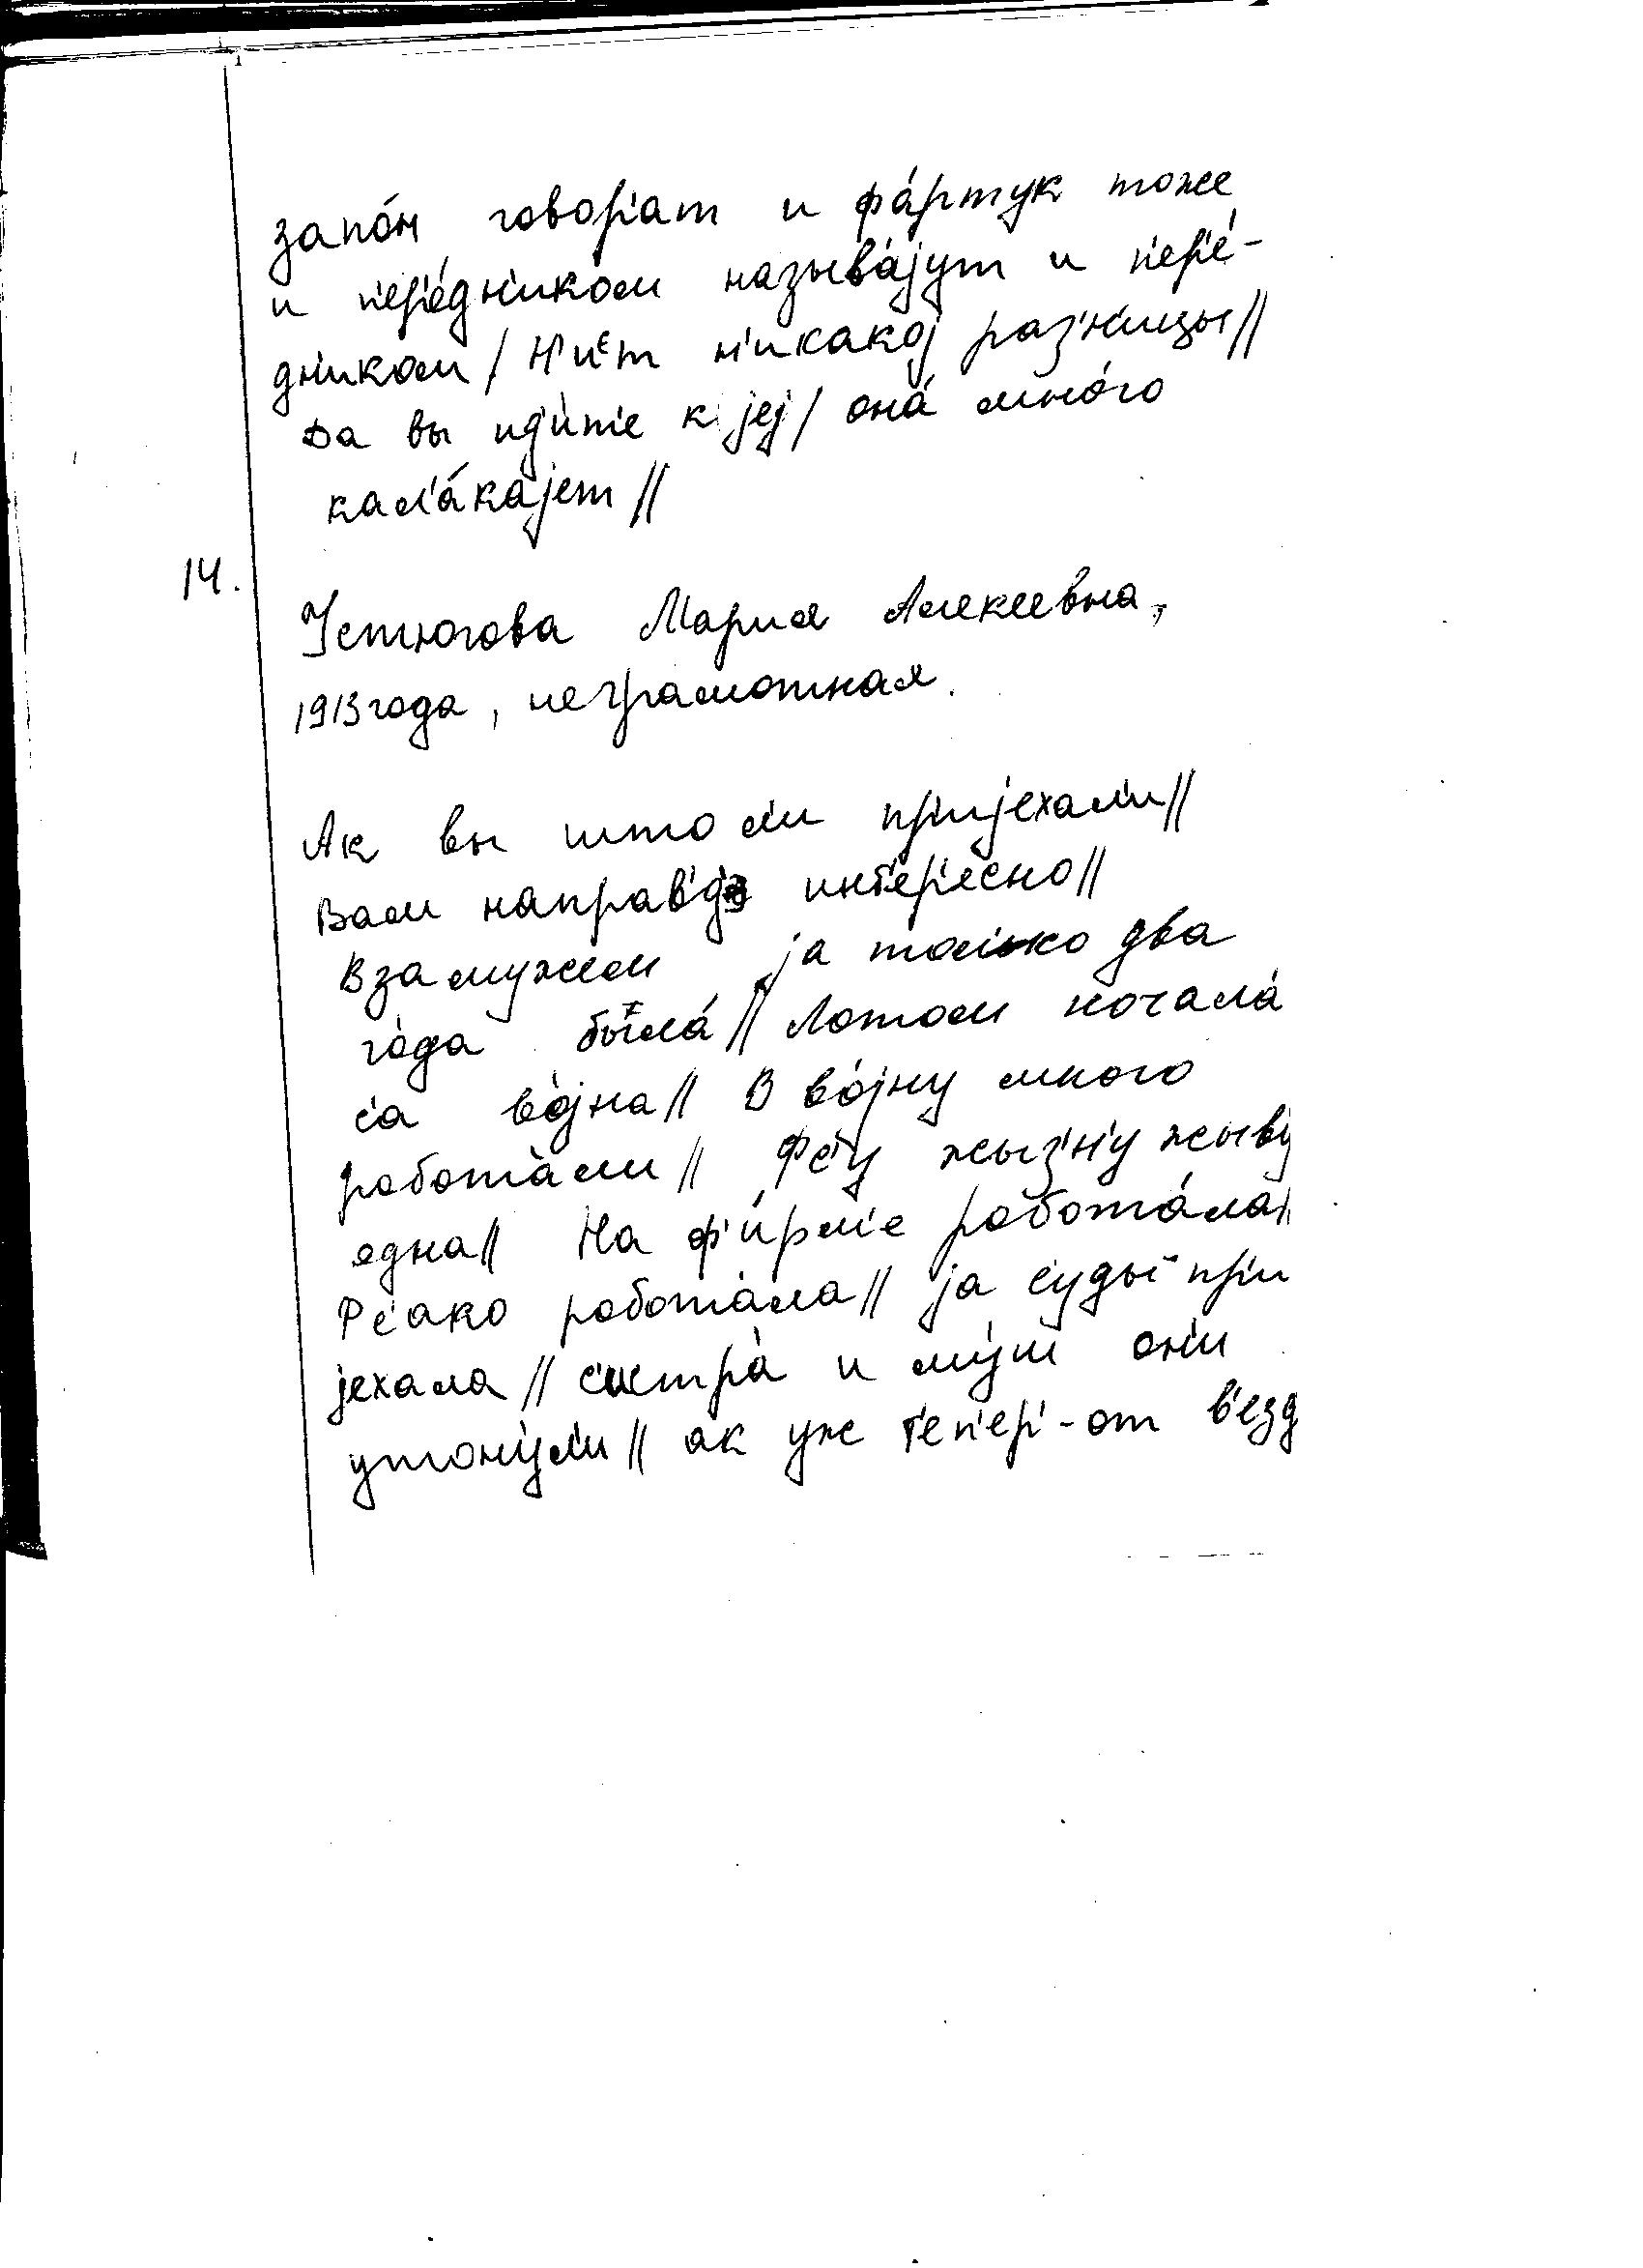 запо́н говор'ат и фа́ртук тоже
и п'ер'е́дн'иком называ́jут и п'ер'е́-
дн'иком / Н'иᵉт н'икакоj раз'н'ицы //
Да вы ид'и́т'е к jеj / она́ мно́го
кал'а́каjет //
14.
Устюгова Мария Алексеевна,
1913 года, неграмотная.
Ак вы што л'и пр'иjехал'и //
Вам направ'д'э инт'ер'есно //
Взамужем jа тол'ко два
го́да была́ // Потом начала́
с'а во́jна // В во́jну много
работа́ли // Фс'у жыз'н'у жыву
одна // На ф'и́рм'е рабо­та́ла //
Фс'ако работа́ла // jа с'уды пр'и
jехала // с'истра́ и му́ш он'и
утону́л'и // ак уже т'еп'ер'-от в'езд